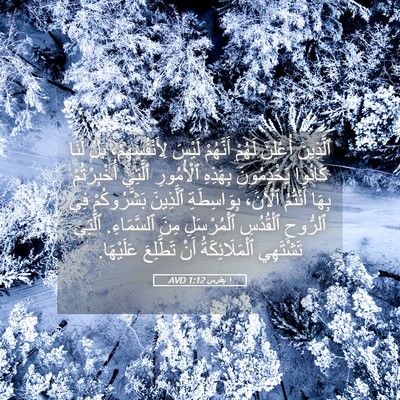 ٱلَّذِينَ أُعْلِنَ لَهُمْ أَنَّهُمْ لَيْسَ لِأَنْفُسِهِمْ، بَلْ لَنَا
كَانُوا يَخْدِمُونَ بِهَذِهِ ٱلْأُمُورِ ٱلَّتِي أُخْبِرْتُمْ
بِهَا أَنْتُمُ ٱلْآنَ، بِوَاسِطَةِ ٱلَّذِينَ بَشَّرُوكُمْ فِي
ٱلرُّوحِ ٱلْقُدُسِ ٱلْمُرْسَلِ مِنَ ٱلسَّمَاءِ. ٱلَّتِي
تَشْتَهِي ٱلْمَلَائِكَةُ أَنْ تَطَّلِعَ عَلَيْهَا.
١ بطرس 1:12 AVD